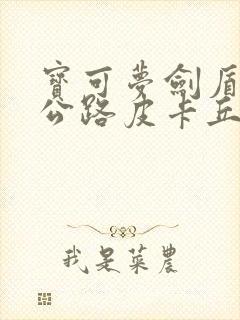 寶可夢劍盾
公路皮卡丘
我是菜農